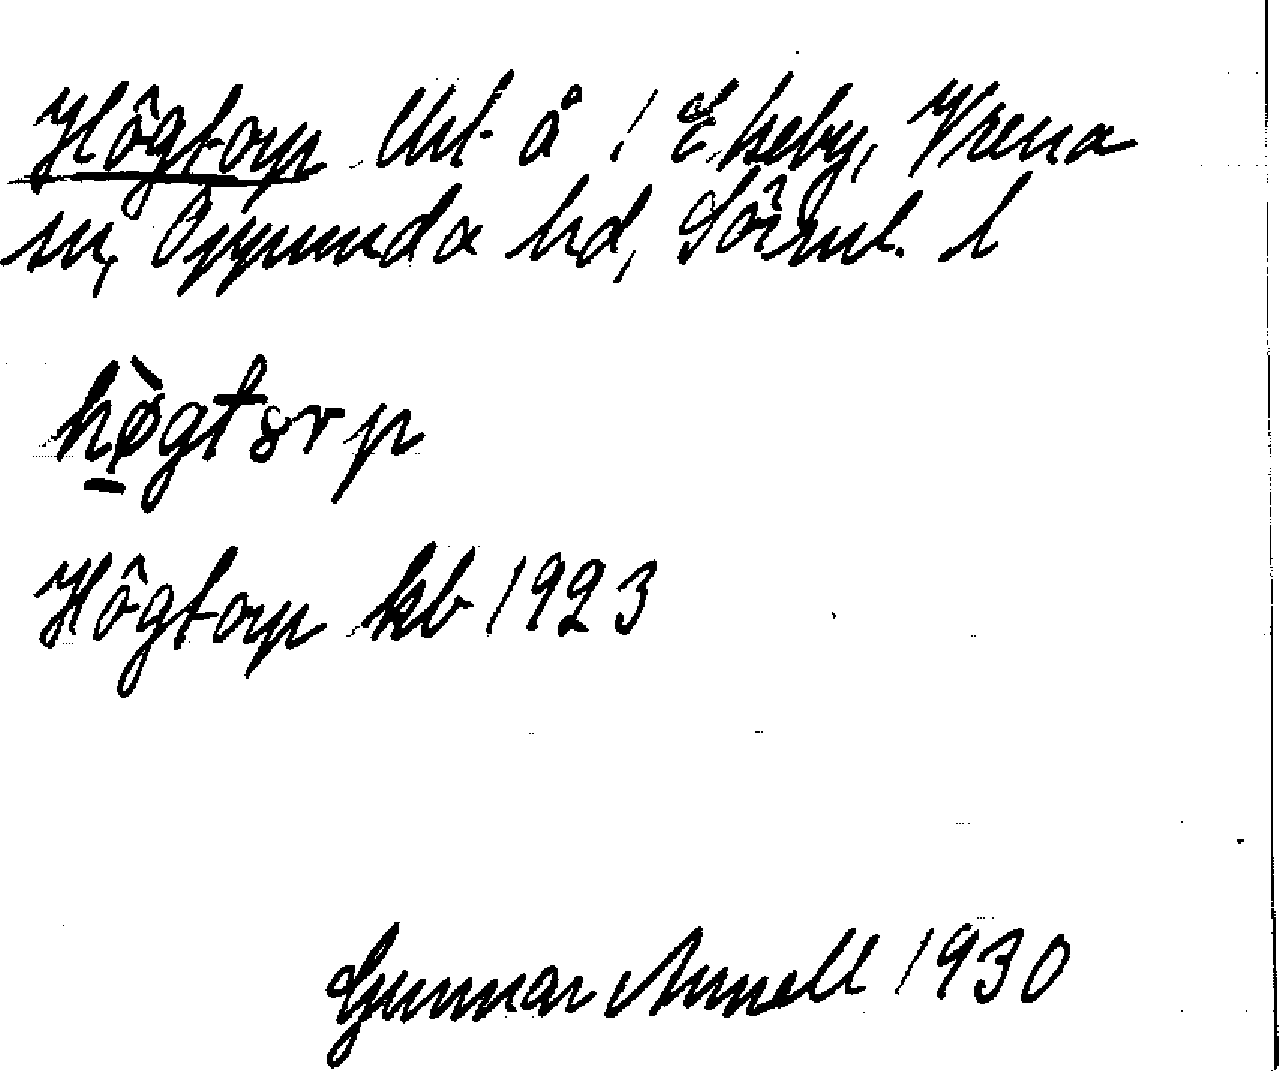 Högtorp Utt å 1 Ekeby, Vrena
sn, Oppunda hd, Sörml. l
hø̀gtɷrp
Högtorp kb 1923
Gunnar Annell 1930